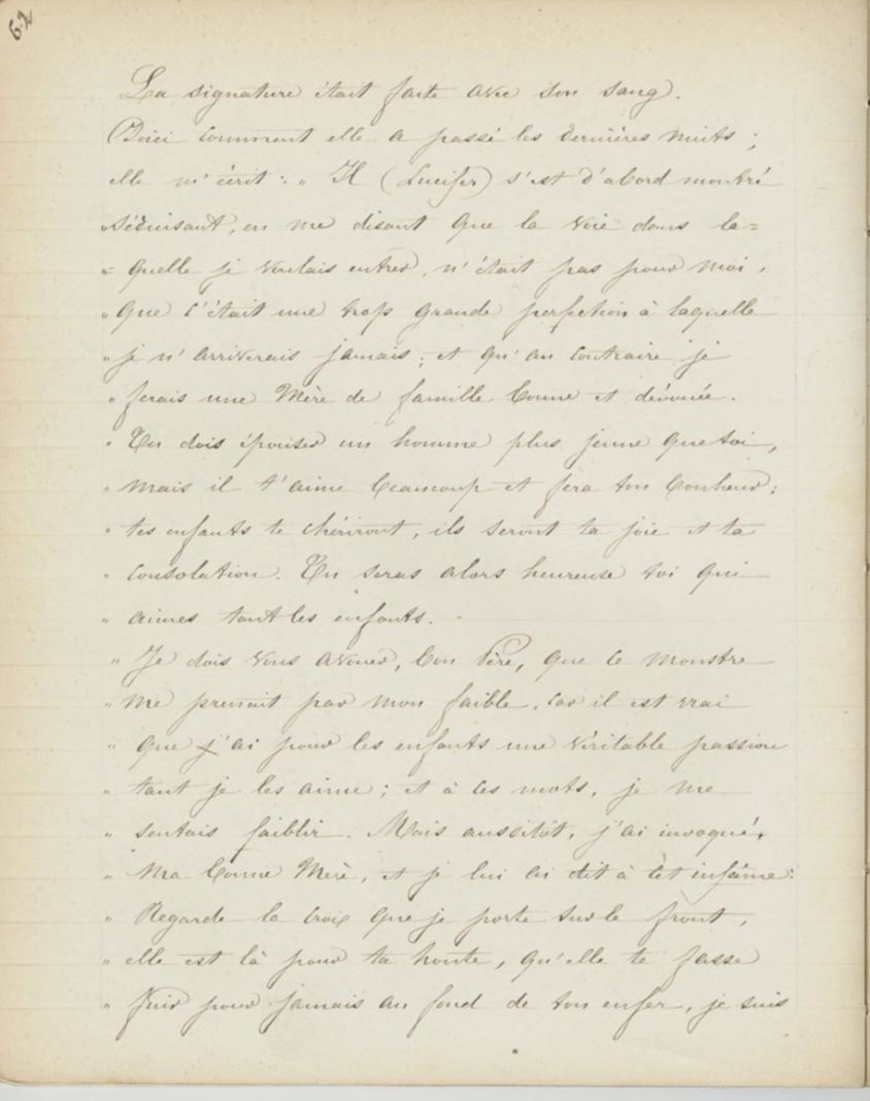 62
La signature était faite avec son sang.
Voici comment elle a passé les dernières nuits ;
elle m'écrit : " Il (Lucifer) s'est d'abord montré
" séduisant, en me disant que la voie dans la=
" = quelle je voulais entrer, n'était pas pour moi,
" que c'était une trop grande perfection à laquelle
" je n'arriverais jamais ; et qu'au contraire je
" ferais une Mère de famille bonne et dévouée.
" Tu dois épouser un homme plus jeune que toi,
" mais il t'aime beaucoup et fera ton bonheur ;
" tes enfants te chériront, ils seront ta joie et ta
" consolation. Tu seras alors heureuse toi qui
" aimes tant les enfants.
" Je dois vous avouer, bon Père, que ce monstre
" me prenait par mon faible, car il est vrai
" que j'ai pour les enfants une véritable passion
" tant je les aime ; et à ces mots, je me
" sentais faiblir. Mais aussitôt, j'ai invoqué
" ma bonne Mère, et je lui ai dit à cet infâme :
" Regarde la croix que je porte sur le front,
" elle est là pour ta honte, qu'elle te fasse
" fuir pour jamais au fond de ton enfer, je suis